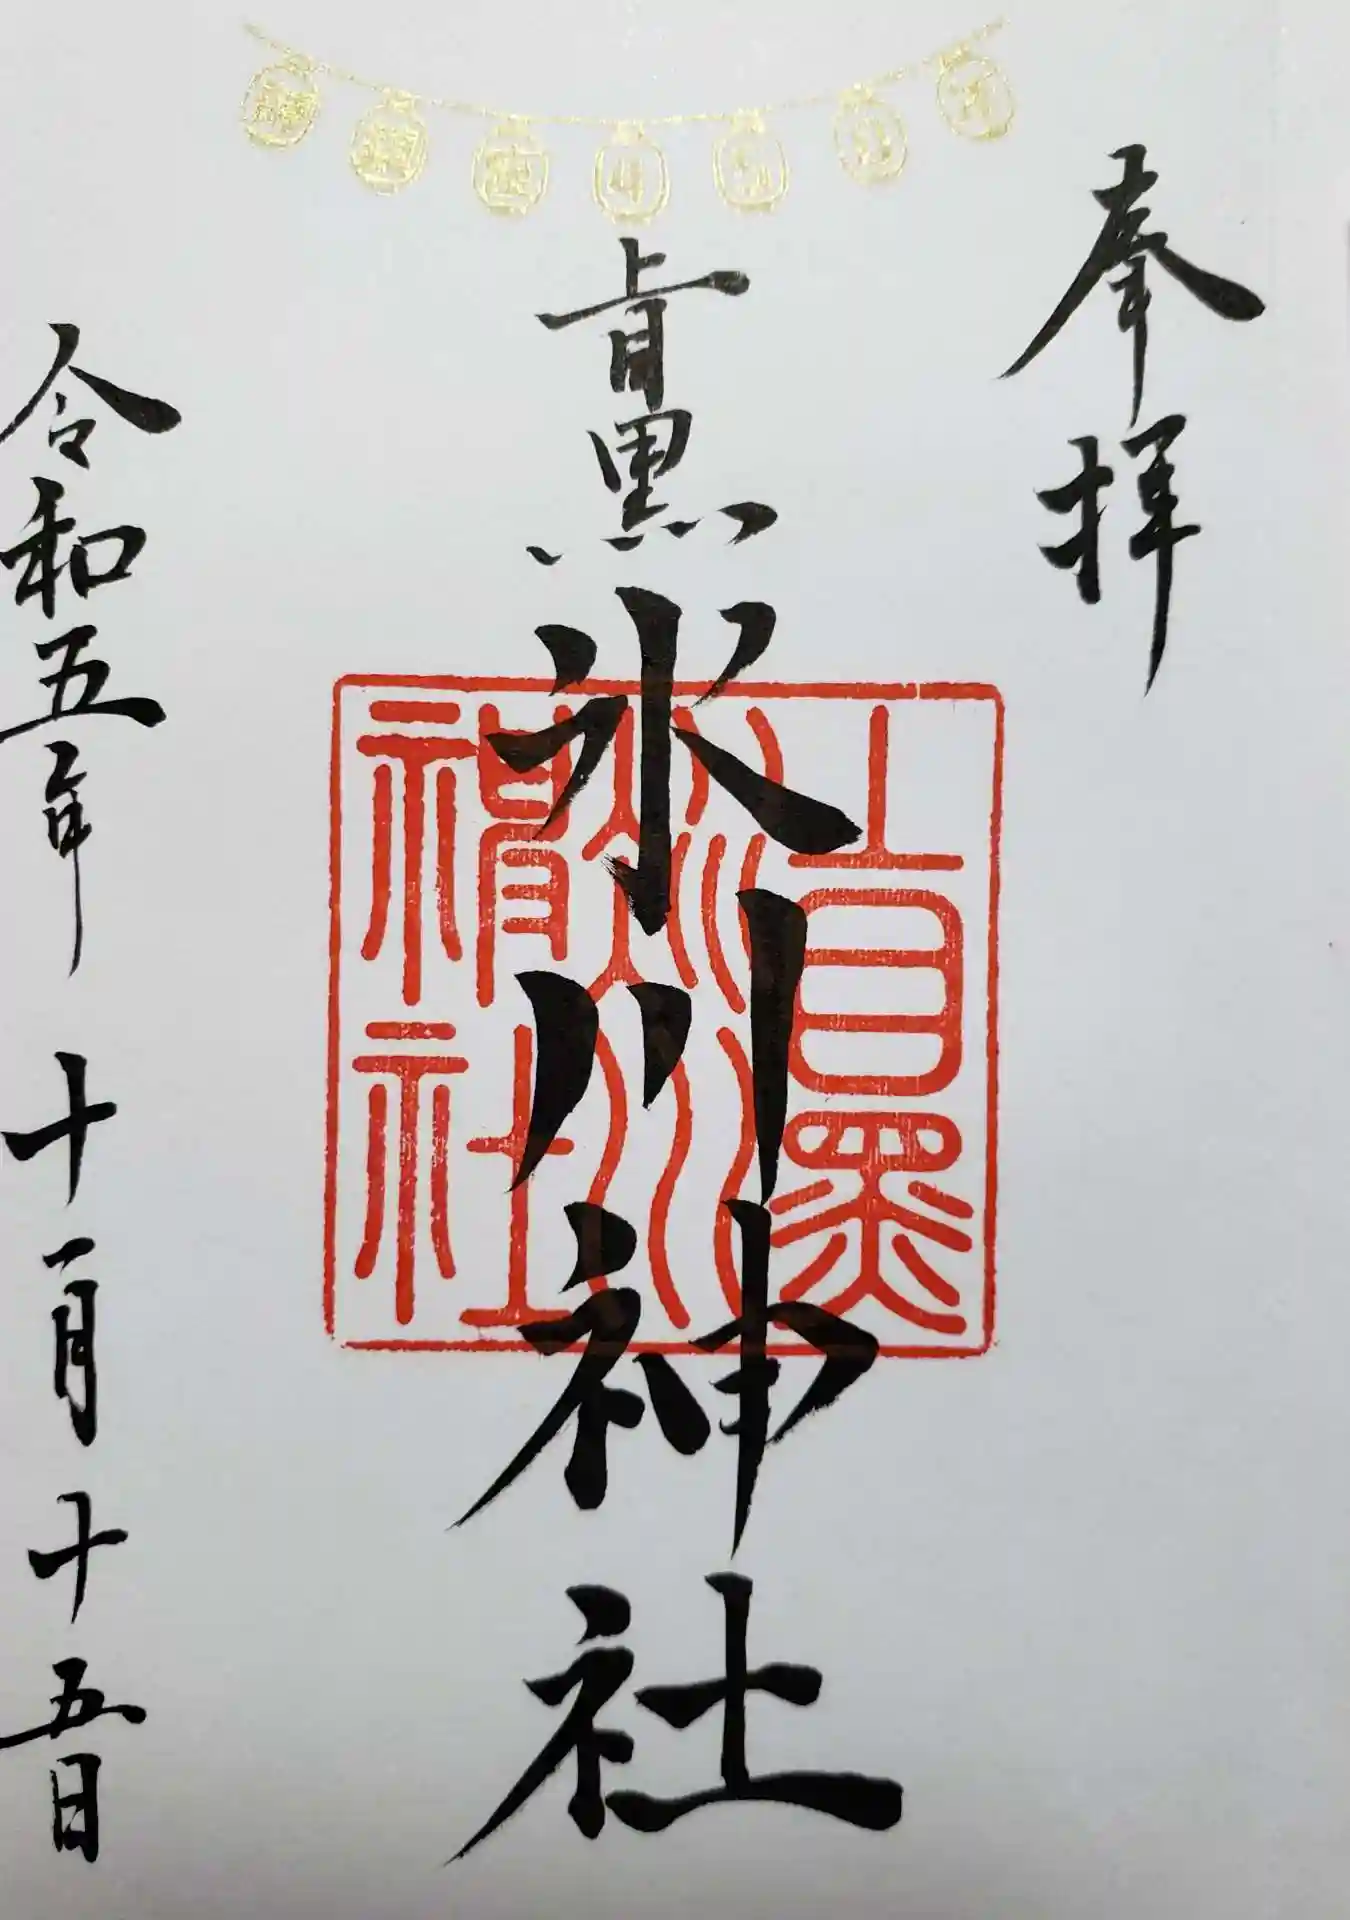 奉拝
上目黒氷川神社
上目黒
氷川
神社
令和五年 十月十五日